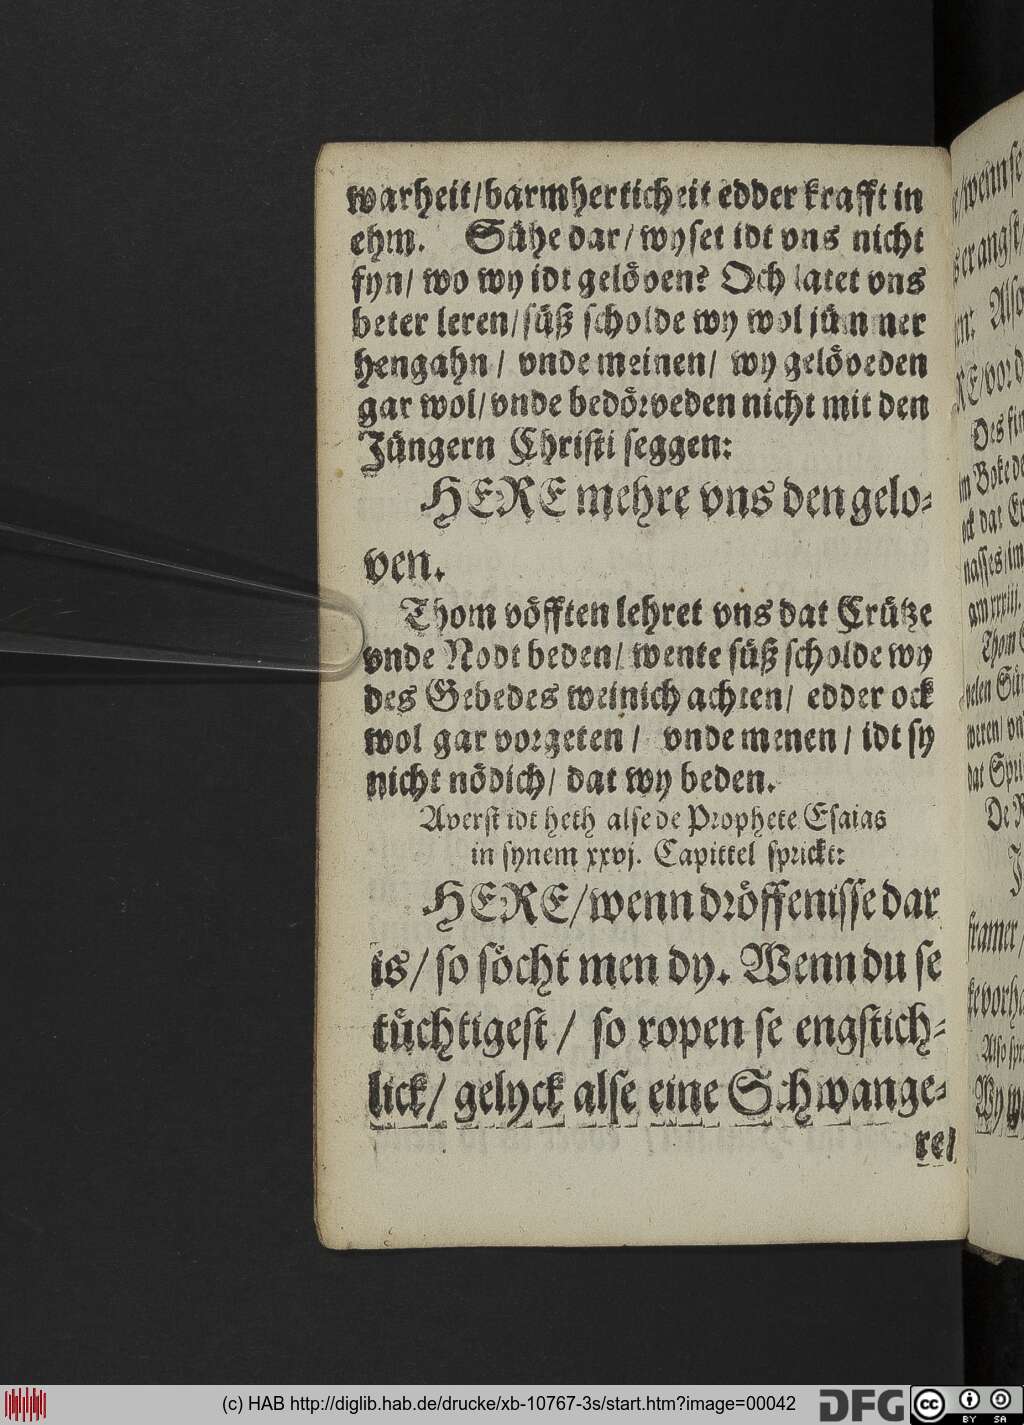 warheit/barmherticheit edder krafft in
ehm. Sühe dar/ wyset idt vns nicht
fyn/ wo wy idt gelöven? Och latet vns
beter leren/süß scholde wy wol jümmer
hengahn/ vnde meinen/ wy gelöveden
gar wol/vnde bedörveden nicht mit den
Jüngern Christi seggen:
HERE mehre vns den gelo-
ven.
Thom vöfften lehret vns dat Crütze
vnde Nodt beden/ wente süß scholde wy
des Gebedes weinich achten/ edder ock
wol gar vorgeten/ vnde menen/ idt sy
nicht nödich/ dat wy beden.
Averst idt heth alse de Prophete Esaias
in synem xxvj. Capittel sprickt:
HERE/wenn dröffenisse dar
is/ so söcht men dy. Wenn du se
tüchtigest/ so ropen se engstich-
lick/ gelyck alse eine Schwange-
re/
(c) HAB http://diglib.hab.de/drucke/xb-10767-3s/start.htm?image=00042
DFG
cc BY SA